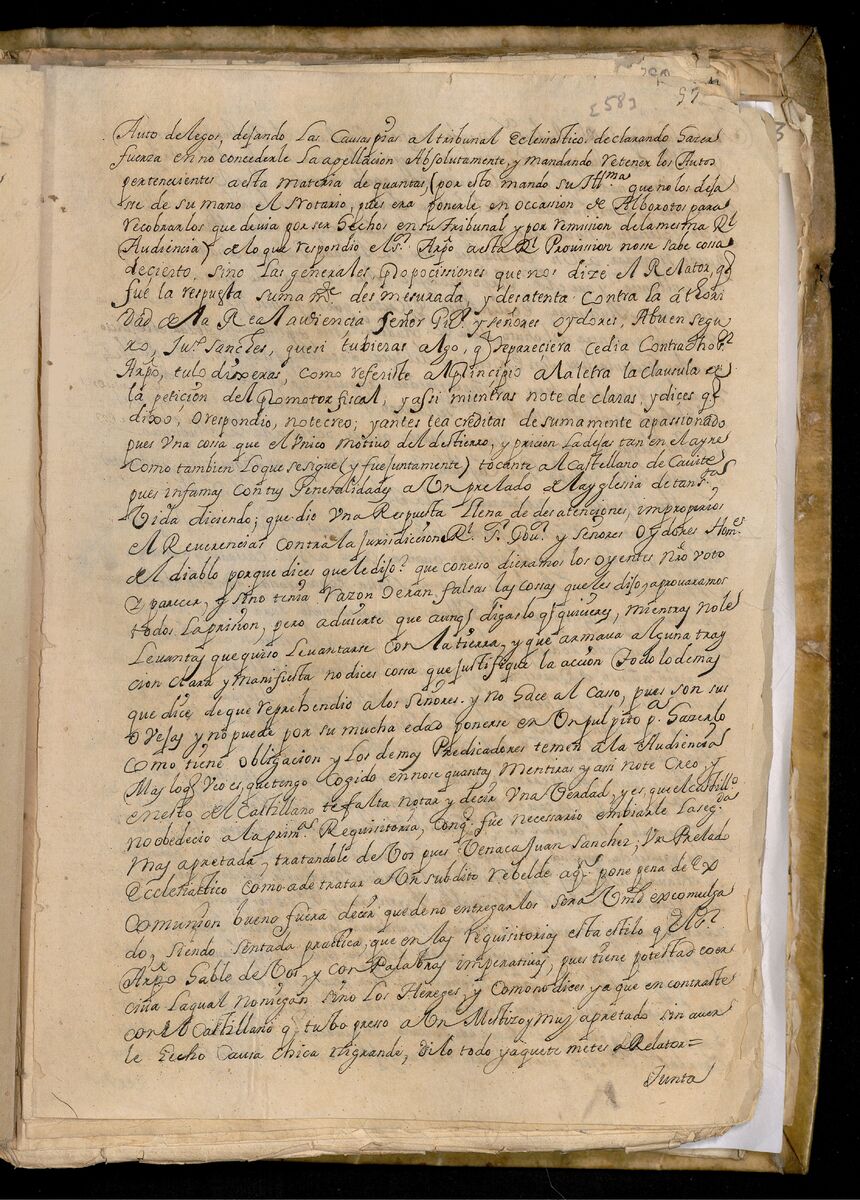 583
Auto de legos, dejando las Causas pias al tribunal Eclesiastico, declarando hazer
fuerza en no concederle la apellacion Absolutamente, y mandando retener los Autos
pertenecientes a esta materia de quantas, (por esto mando su Ill.ma que no los deja
sse de su mano el Notario, pues era ponerle en occasion de Alborotos para
recobrarlos que devia por ser hechos en su tribunal y por remission de la mesma R.l
Audiencia) de lo que respondio el S.r Arpo a esta R.l Provission no se sabe cossa
de cierto, sino las generales, propocissiones que nos dize el Relator, q
fue la respuesta suma m.te desmesurada, y desatenta contra la athori
dad de la Real audiencia señor y señores oydores, A buen segu
ro, Ju.o Sanches, que si tubieras algo, q pareciera cedia contra
Arpo, tu lo dixeras, como referiste al principio a la letra la clausula en
la peticion del promotor fiscal, y assi mientras no te declaras, y dices q
dixo, o respondio, no te creo; y antes te acreditas de sumamente apassionado
pues una cossa que el unico motivo del destierro, y pricion la dejas tan en el ayre
Como tambien lo que se sigue (y fue juntamente) tocante al Castellano de Cavite
pues infamas con tus Generalidades a un prelado de la yglesia de tan s.ta
vida diciendo; que dio una Respuesta llena de desatenciones, impropérios
e Yrreverencias contra la jurisdiccion R.l Gov.r y señores Oydores Hom.es
del diablo porque dices que le dijo? que con esso dieramos los oyentes nro voto
y parecer, y si no tenia razon o eran falsas las cossas que les dijo, aprovaramos
todos la prision, pero advierte que aunq digas lo q quisieres, mientras no le
levantas que quiso levantarse con la tierra, y que armava alguna tray
cion clara y manifiesta no dices cossa que justifique la accion todo lo demas
que dices de que reprehendio a los señores. y no hace al caso, pues son sus
ovejas y no puede por su mucha edad ponerse en un pulpito p.a hazerlo
como tiene obligacion y los demas Predicadores temen a la Audiencia
Mas lo q veo es, que te tengo cogido en no se quantas mentiras y assi no te creo, y
en esto del Castillano te falta notar y decir una verdad, y es, que el Castill.o
no obedecio a la prim.a Requisitoria, con q. fue necessario embiarle la seg.da
mas apretada, tratandole de vos pues venaca Juan Sanchez, un Prelado
Ecclesiastico como a de tratar a un subdito rebelde a q.n pone pena de Ex
comunion bueno fuera decir que de no entregarlos sera Vmd excomulga
do, siendo sentada practica, que en las requisitorias esta estilo q el
Arpo hable de vos, y con Palabras imperativas, pues tiene potestad coer
civa la qual no niegan sino los Hereges, y como no dices ya que en contraste
con el Castillano q tubo preso a un Mestizo y muy apretado sin aver
le hecho causa chica ni grande, dilo todo ya que te metes a Relator =
Junta